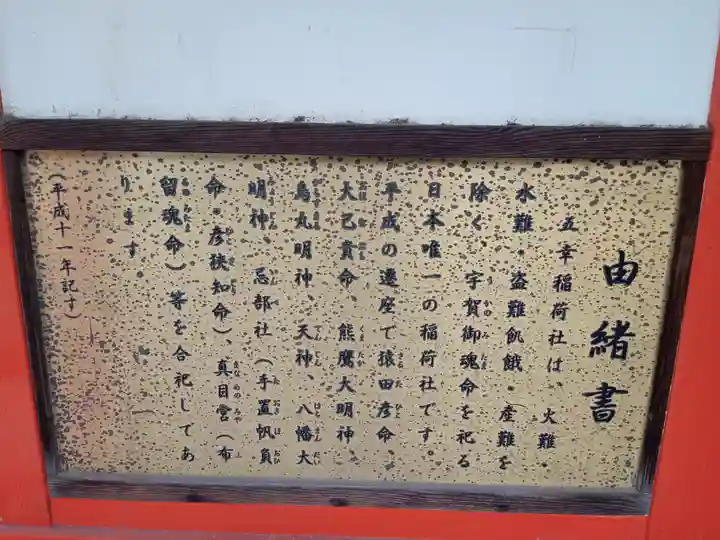 由緒書
五幸稲荷社は、火難・
水難・盗難飢餓・産難を
除く宇賀御魂命を祀る
日本唯一の稲荷社です。
平成の遷座で猿田彦命、
大己貴命、熊鷹大明神、
烏丸明神、天神、八幡大
明神、忌部社（手置帆負
命・彦狭知命）、真目宮（布
留魂命）等を合祀してあ
ります
（平成十一年記す）